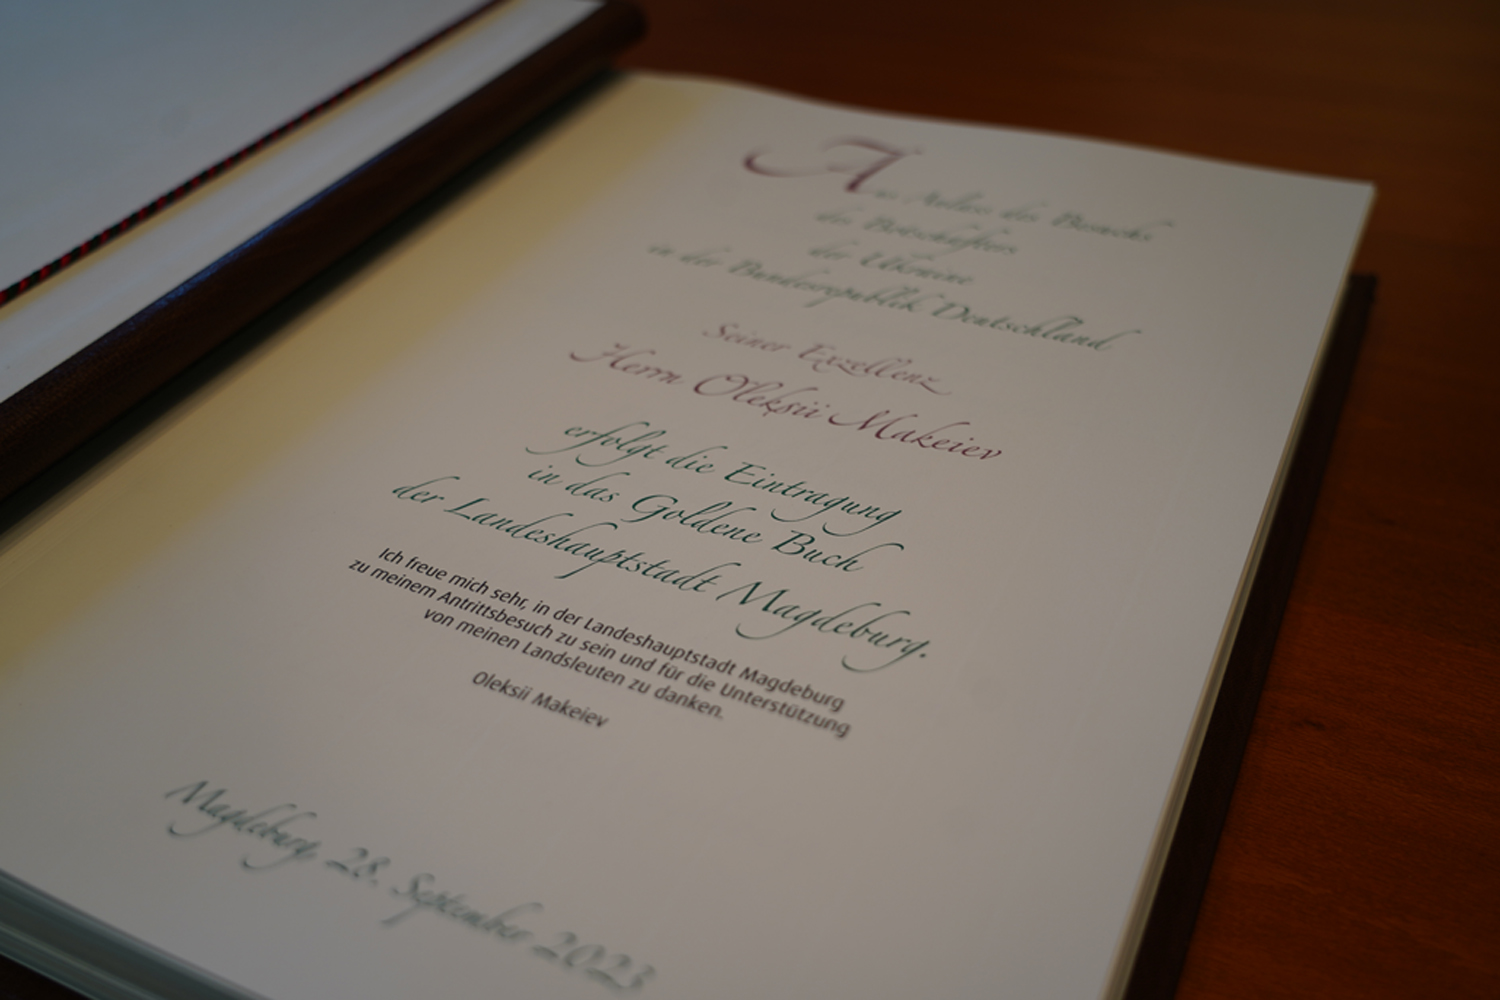 Aus Anlass des Besuchs
des Botschafters
der Ukraine
in der Bundesrepublik Deutschland
Seiner Exzellenz
Herrn Oleksii Makeiev
erfolgt die Eintragung
in das Goldene Buch
der Landeshauptstadt Magdeburg.
Ich freue mich sehr, in der Landeshauptstadt Magdeburg
zu meinem Antrittsbesuch zu sein und für die Unterstützung
von meinen Landsleuten zu danken.
Oleksii Makeiev
Magdeburg, 28. September 2023